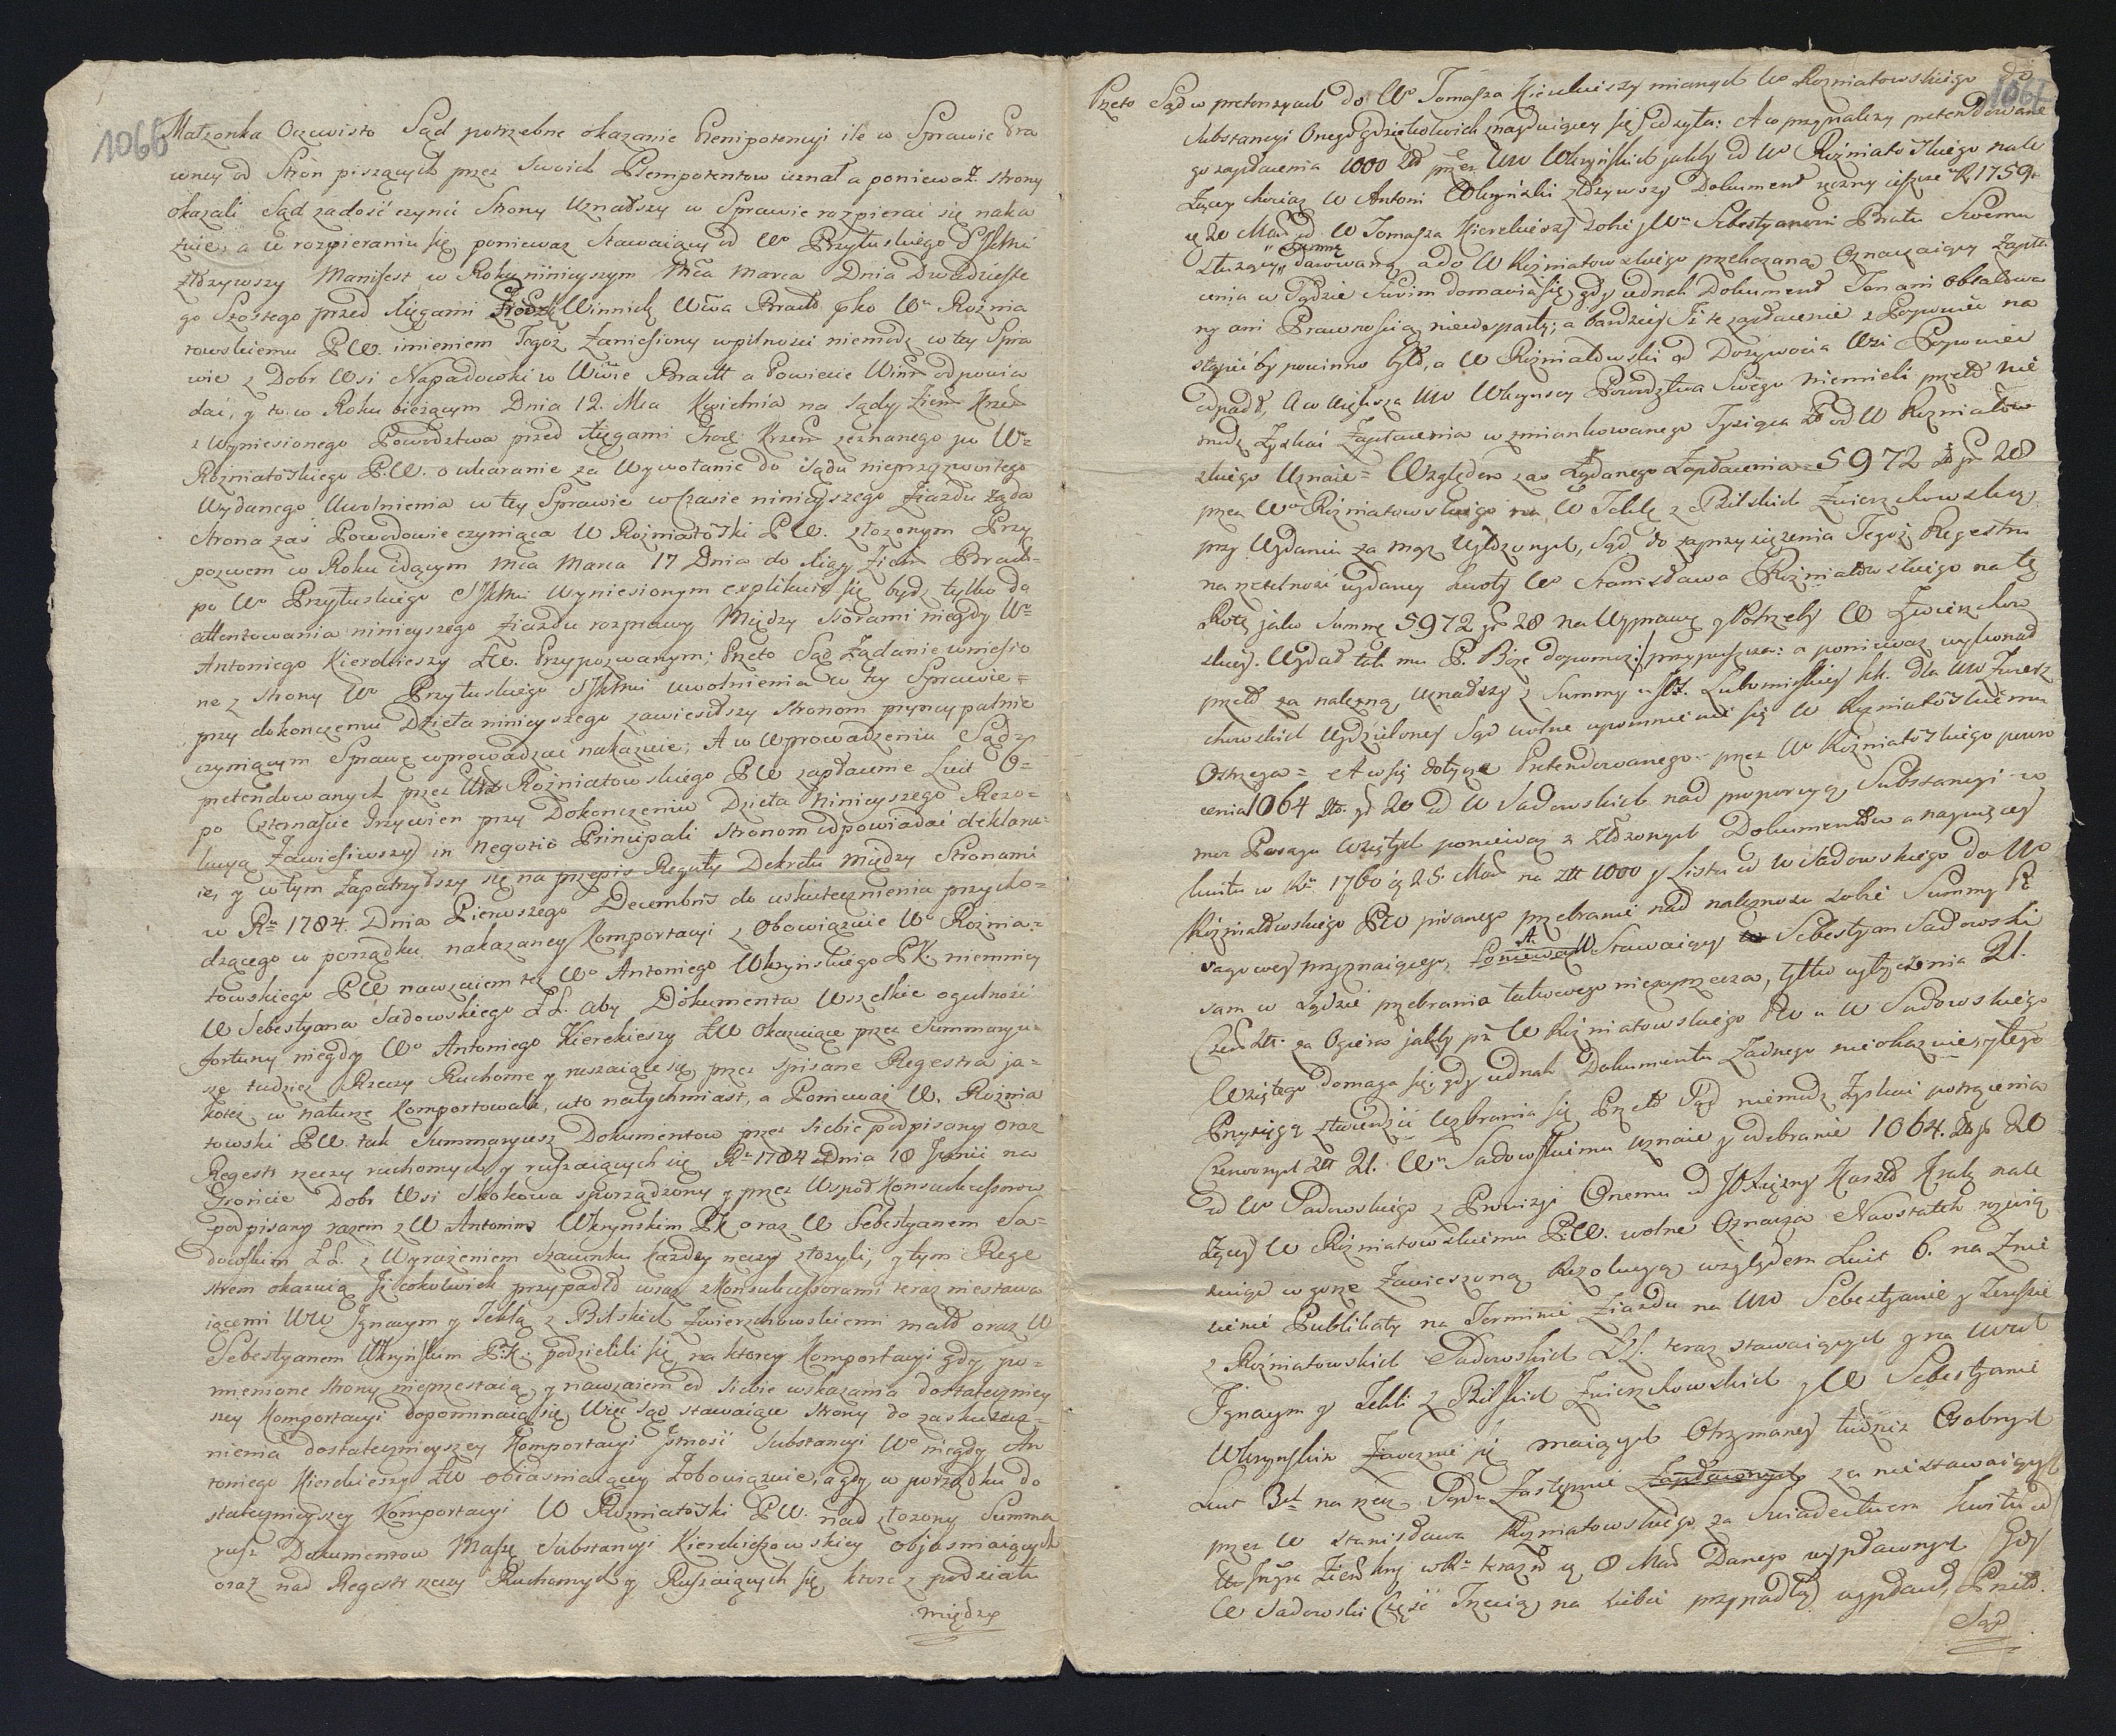 1066
Małzonka Oczewisto Sąd potrzebne okazanie Plenipotencyi ile w Sprawie Pra
wney od Stron piszących przez Swoich Plenipotentow uznał a ponieważ strony
okazali Sąd zadość czynić Strony Uznawszy w Sprawie rozpierać się naka
zuie, a w rozpieraniu się ponieważ Stawaiący od Wo Przyłuskiego
złożywszy Manifest w Roku ninieyszym Mca Marca Dnia Dwudzieste
go Szostego przed Xięgami Grodz Winnick Wwa Bracł pko Wu Roznia
towskiemu PW. imieniem Tegoż Zaniesiony wpilności niemodz w tey Spra
wie z Dobr Wsi Napadowki w Wwie Bracł a Powiecie Winn odpowia
dać, y to w Roku bieżącym Dnia 12. Mca Kwietnia na Sądy Ziem Krzem
z wyniesionego Powodztwa przed Xięgami Grod: Krzem zeznanego po Wo
Rozniatoskiego PW. o ukaranie za Wywołanie do Sądu nieprzyzwoitego
Wydanego Uwolnienia w tey Sprawie w czasie ninieyszego Ziazdu żąda
Strona zaś Powodowie czyniąca W Rozniatoski PW. złożonym Przy
pozwem w Roku idącym Mca Marca 17 Dnia do Xiąg Ziem Bracł
po Wo Przyłuskiego wyniesionym explikuie się bydź tylko do
attentowania ninieyszego Ziazdu rozprawy Między Ssorami niegdy Wo
Antoniego Kierekieszy ŁW. Przypozwanym; Przeto Sąd Żądanie wniesio
ne z strony Wo Przyłuskiego uwolnienia w tey Sprawie
przy dokończeniu Dzieła ninieyszego zawiesiwszy Stronom pryncypalnie
czyniącym Sprawę wprowadzać nakazuie; A w wprowadzeniu Sąd
pretendowanych przez Rozniatowskiego PW zapłacenie Luit 6
po Czternaście Grzywien przy Dokończeniu Dzieła ninieyszego Rezo
lucyą Zawiesiwszy in Negotio Principali Stronom odpowiadać deklaru
ie, y w tym Zapatrzywszy się na przepis Reguły Dekretu między Stronami
w Ru 1784. Dnia Pierwszego Decembris do uskutecznienia przycho
dzącego w porządku nakazaney Komportacyi z Obowiązuie Wo Roznia
towskiego PW nawzaiem też Wo Antoniego Wkryńskiego PK. niemniey
W Sebestyana Sadowskiego ŁŁ. aby Dokumenta Wszelkie ogulność
fortuny niegdy Wo Antoniego Kierekieszy ŁW Okazuiące przez Summaryu
sz tudzież Rzeczy Ruchome y ruszaiące się przez spisane Regestra ja
koteż w naturze Komportowali, a to natychmiast, a Ponieważ W. Roznia
towski PW. tak Summaryusz Dokumentow przez siebie podpisany oraz
Regestr rzeczy ruchomych y ruszaiących się Ru 1784 Dnia 18 Junii na
Groncie Dobr Wsi Skokowa sporządzony y przez Wspoł Konsukcessorow
podpisany razem z W Antonim Wkrynskim PK oraz W Sebestyanem Sa
dowskim ŁŁ. z Wyrażeniem szacunku każdey rzeczy złożyli, y tym Rege
strem okazuią Iż cokolwiek przypadło wraz z Konsukcessorami teraz niestawa
iącemi WW Ignacym y Teklą z Bilskich Zwierzchowskiemi małż oraz W
Sebestyanem Wkryńskim P.K. podzielili się, na ktorey Komportacyi gdy po
mienione strony nieprzestaią y nawzaiem od siebie wskazania dostateczniey
szey Komportacyi dopominaią się, Więc Sąd stawaiące Strony do zaskutecz
nienia dostatecznieyszey Komportacyi Istność Substancyi Wo niegdy An
toniego Kierekieszy ŁW obiaśniaiącey Zobowiązuie, a gdy w porządku do
statecznieyszey Komportacyi W Rozniatoski PW. nad złożony Summa
ryusz Dokumentow Massę Substancyi Kierekieszowskiey objaśniaiących
oraz nad Regestr rzeczy Ruchomych y Ruszaiących się, ktore z podziału
między
1067
Przeto Sąd w pretensyach do Wo Tomasza Kierekieszy mianych Wo Rozniatowskiego do
Substancyi Onego gdziekolwiek znayduiącey się odzyła: A co przynależy pretendowane
go zapłacenia 1000 Zł przez WW Wkryńskich jakby od Wo Rozniatoskiego nale
żący chociaż W Antoni Wkryński złożywszy Dokument ręczny jeszcze Ru 1759
ą 20 Maii od W Tomasza Kierekieszy sobie y Wu Sebestyanowi Bratu Swemu
służący Summę darowaną a do W Rozniatowskiego przekazaną Oznaczaiący zapła
cenia w Sądzie Swoim domawia się, gdy iednak Dokument Ten ani oblatowa
ny ani Prawnością niewsparty; a bardziey Iż te zapłacenie z Porzwnie na
stąpić by powinno było, a W Rozniatowski od Dożywocia Wsi
odpadł, A w większa WW Wkryńscy Powodztwa Swego niemieli przeto nie
modz Zyskać Zapłacenia wzmiankowanego Tysiąca Zł od W Rozniatow
skiego Uznaie = Względem zas Żądanego Zapłacenia 5972 zł gr 28
przez Wo Rozniatowskiego na W Teklę z Bilskich Zwierzchowską
przy Wydaniu za mąż Wyłożonych, Sąd do zaprzysiężenia Tegoż Regestru
na rzetelność wydaney kwoty Wo Stanisława Rozniatowskiego na tę
Rotę jako Summę 5972 gr 28 na Wyprawę y Potrzeby W Zwierzchow
skiey. Wydał tak mu P. Boże dopomoż: przypuszcza: a ponieważ wykonał
przeto za należną uznawszy z Summy u JO. Lubomirskiey kk. dla WW Zwierz
chowskich Wydzieloney Sąd wolne upomnienie się W Rozniatoskiemu
Ostrzega = A w się dotycze Pretendowanego przez Wo Rozniatoskiego powro
cenia 1064 zł. gr 20 od W Sadowskich nad proporcyą Substancyi w
mor Posagu wziętych ponieważ z złożonych Dokumentow a naywięcey
kwitu w Ru 1760 ą 25. Maii na zł 1000 y Listu od W Sadowskiego do Wo
Rozniatowskiego PW pisanego przebranie nad należność sobie Summy Po
sagowey przyznaiącego, A. W. Stawaiący Sebestyan Sadowski
sam w Sądzie przebrania takowego niezaprzecza, tylko wytrącenia 21.
Czer zł. za Ogiera jakby pr W Rozniatowskiego PW u W Sadowskiego
Wziętego domaga się; gdy iednak Dokumentu Żadnego nieokazuie, y tego
Przysięgą stwierdzić wzbrania się, Przeto Sąd niemodz Zyskać potrącenia
Czerwonych zł 21. Wu Sadowskiemu uznaie y odebranie 1064. zł gr 20
od Wo Sadowskiego z Prowizyi Onemu od JO Xiężny Kaszto Krak nale
żącey W Rozniatowskiemu P.W. wolne Oznacza Naostatek rozwią
zuiąc w gorze Zawieszoną Rezolucyą względem Luit 6. na Znie
sienie Publikaty na Terminie Ziazdu na WW Sebestyanie y Teressie
z Rozniatowskich Sadowskich ŁŁ. teraz stawaiących y na WWch
Ignacym y Tekli z Bilskich Zwierzchowskich y W Sebestyanie
Wkrynskim Zaocznie się maiących Otrzymaney tudzież Osobnych
Luit 3ch na rzecz Sądu Zastępnie za niestawaiących
przez W Stanisława Rozniatowskiego za Swiadectwem kwitu od
ą 8 Maii Danego wypłaconych Gdy
W Sadowski Część Trzecią na siebie przypadłą wypłacił, Przeto
Sąd